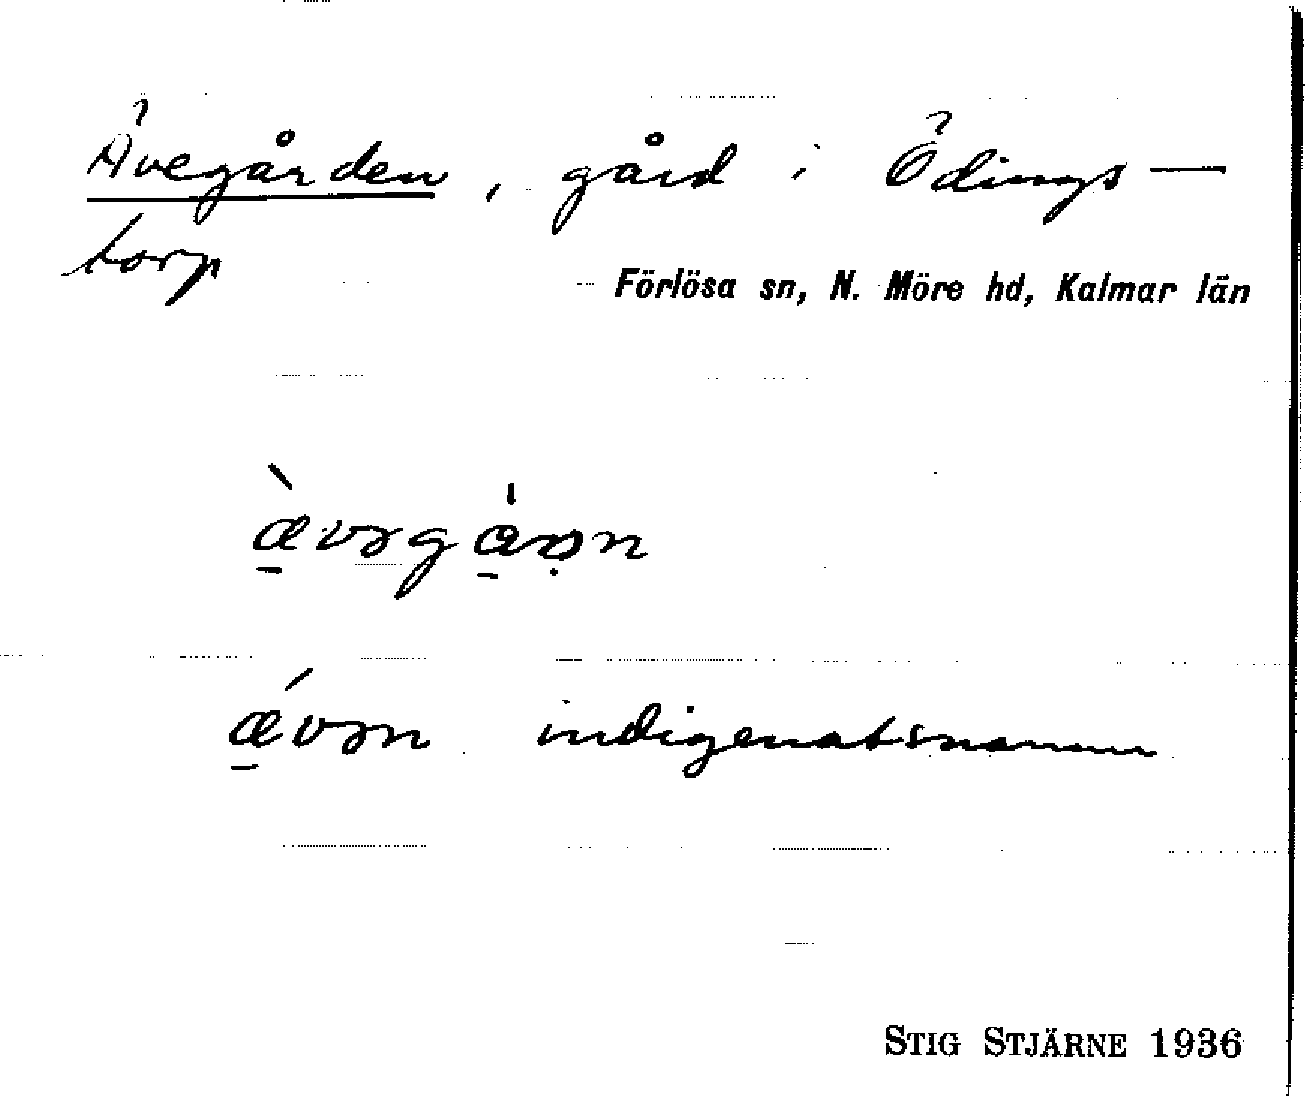 Ävegården, gård i Ödings-
torp
Förlösa sn, N. Möre hd, Kalmar län
æ̠̀vəgá̠ṛən
ǽ̠vən indigenatsnamn
STIG STJÄRNE 1936